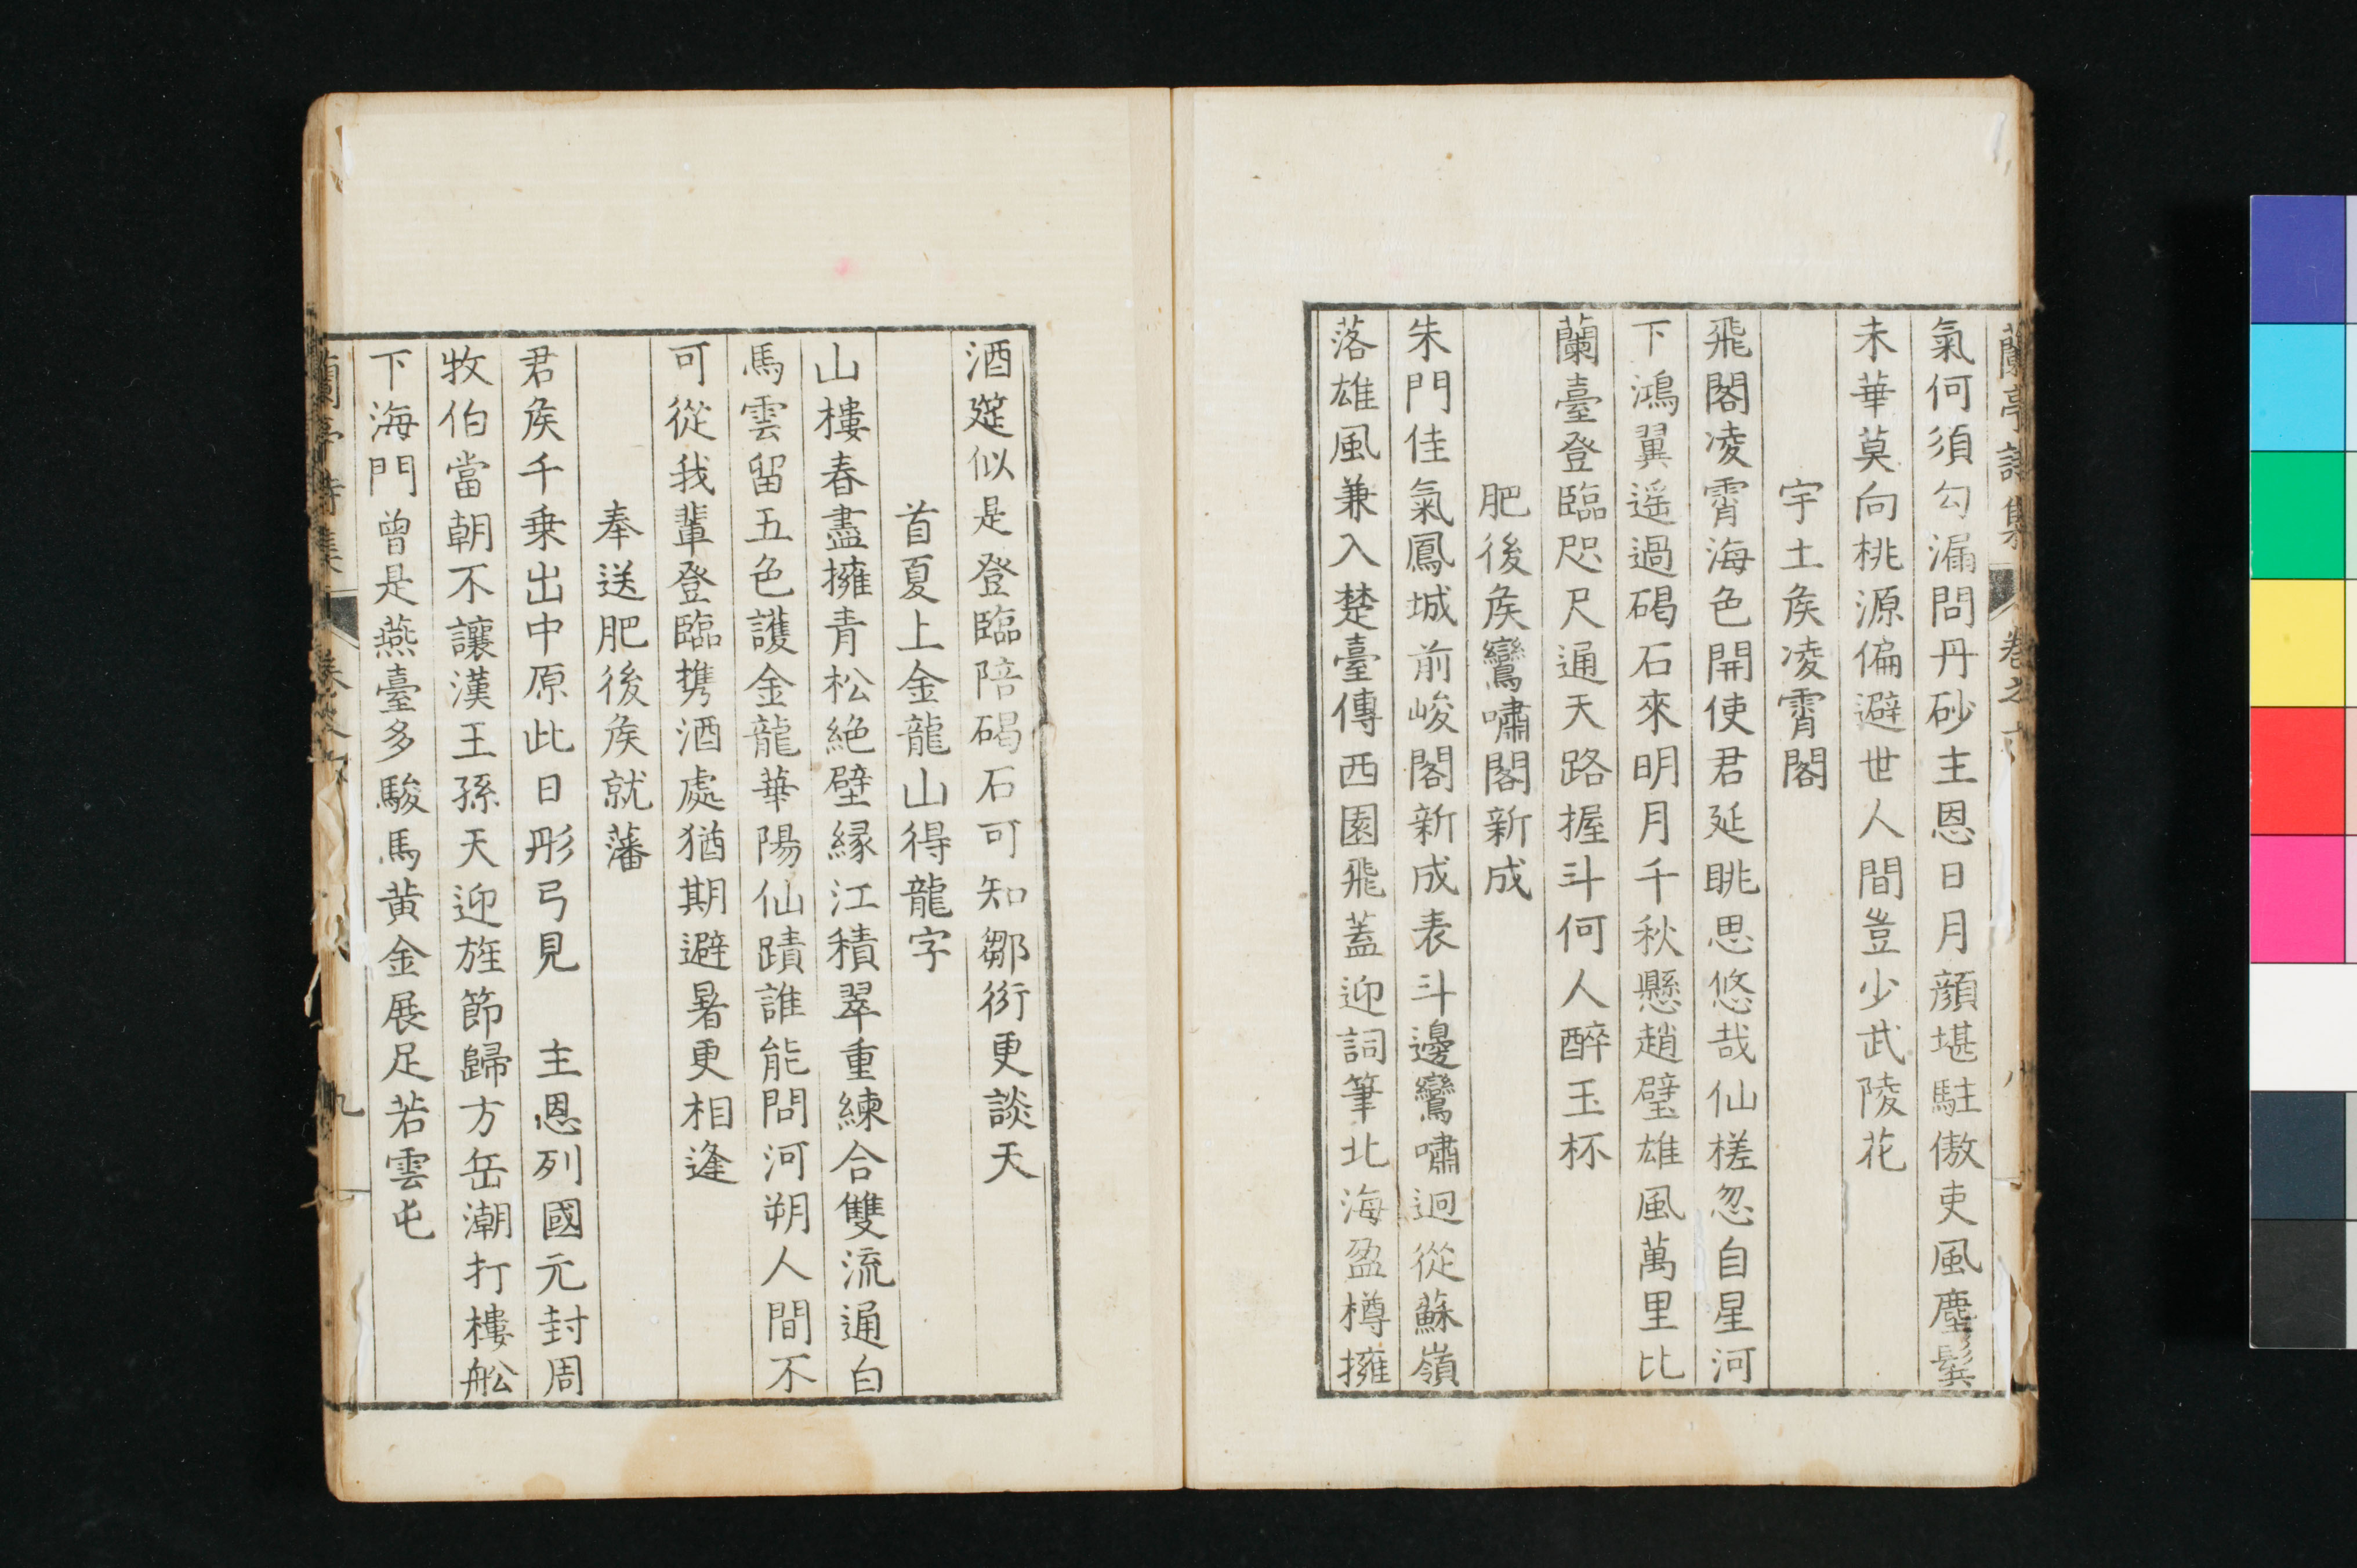 氣何須勾漏問丹砂主恩日月顔堪駐傲吏風塵鬂
未華莫向桃源偏避世人間豈少武陵花
宇土矦凌霄閣
飛閣凌霄海色開使君延眺思悠哉仙槎忽自星河
下鴻翼遥過碣石來明月千秋懸趙璧雄風萬里比
蘭臺登臨咫尺通天路握斗何人醉玉杯
肥後矦鸞嘯閣新成
朱門佳氣鳳城前峻閣新成表斗邊鸞嘯迥從蘇嶺
落雄風兼入楚臺傳西園飛蓋迎詞筆北海盈樽擁
酒筵似是登臨陪碣石可知鄒衍更談天
首夏上金龍山得龍字
山樓春盡擁青松絶壁縁江積翠重練合雙流通白
馬雲留五色護金龍華陽仙蹟誰能問河朔人間不
可從我輩登臨携酒處猶期避暑更相逢
奉送肥後矦就藩
君矦千乗出中原此日彤弓見　主恩列國元封周
牧伯當朝不讓漢王孫天迎旌節歸方岳潮打樓舩
下海門曾是燕臺多駿馬黄金展足若雲屯